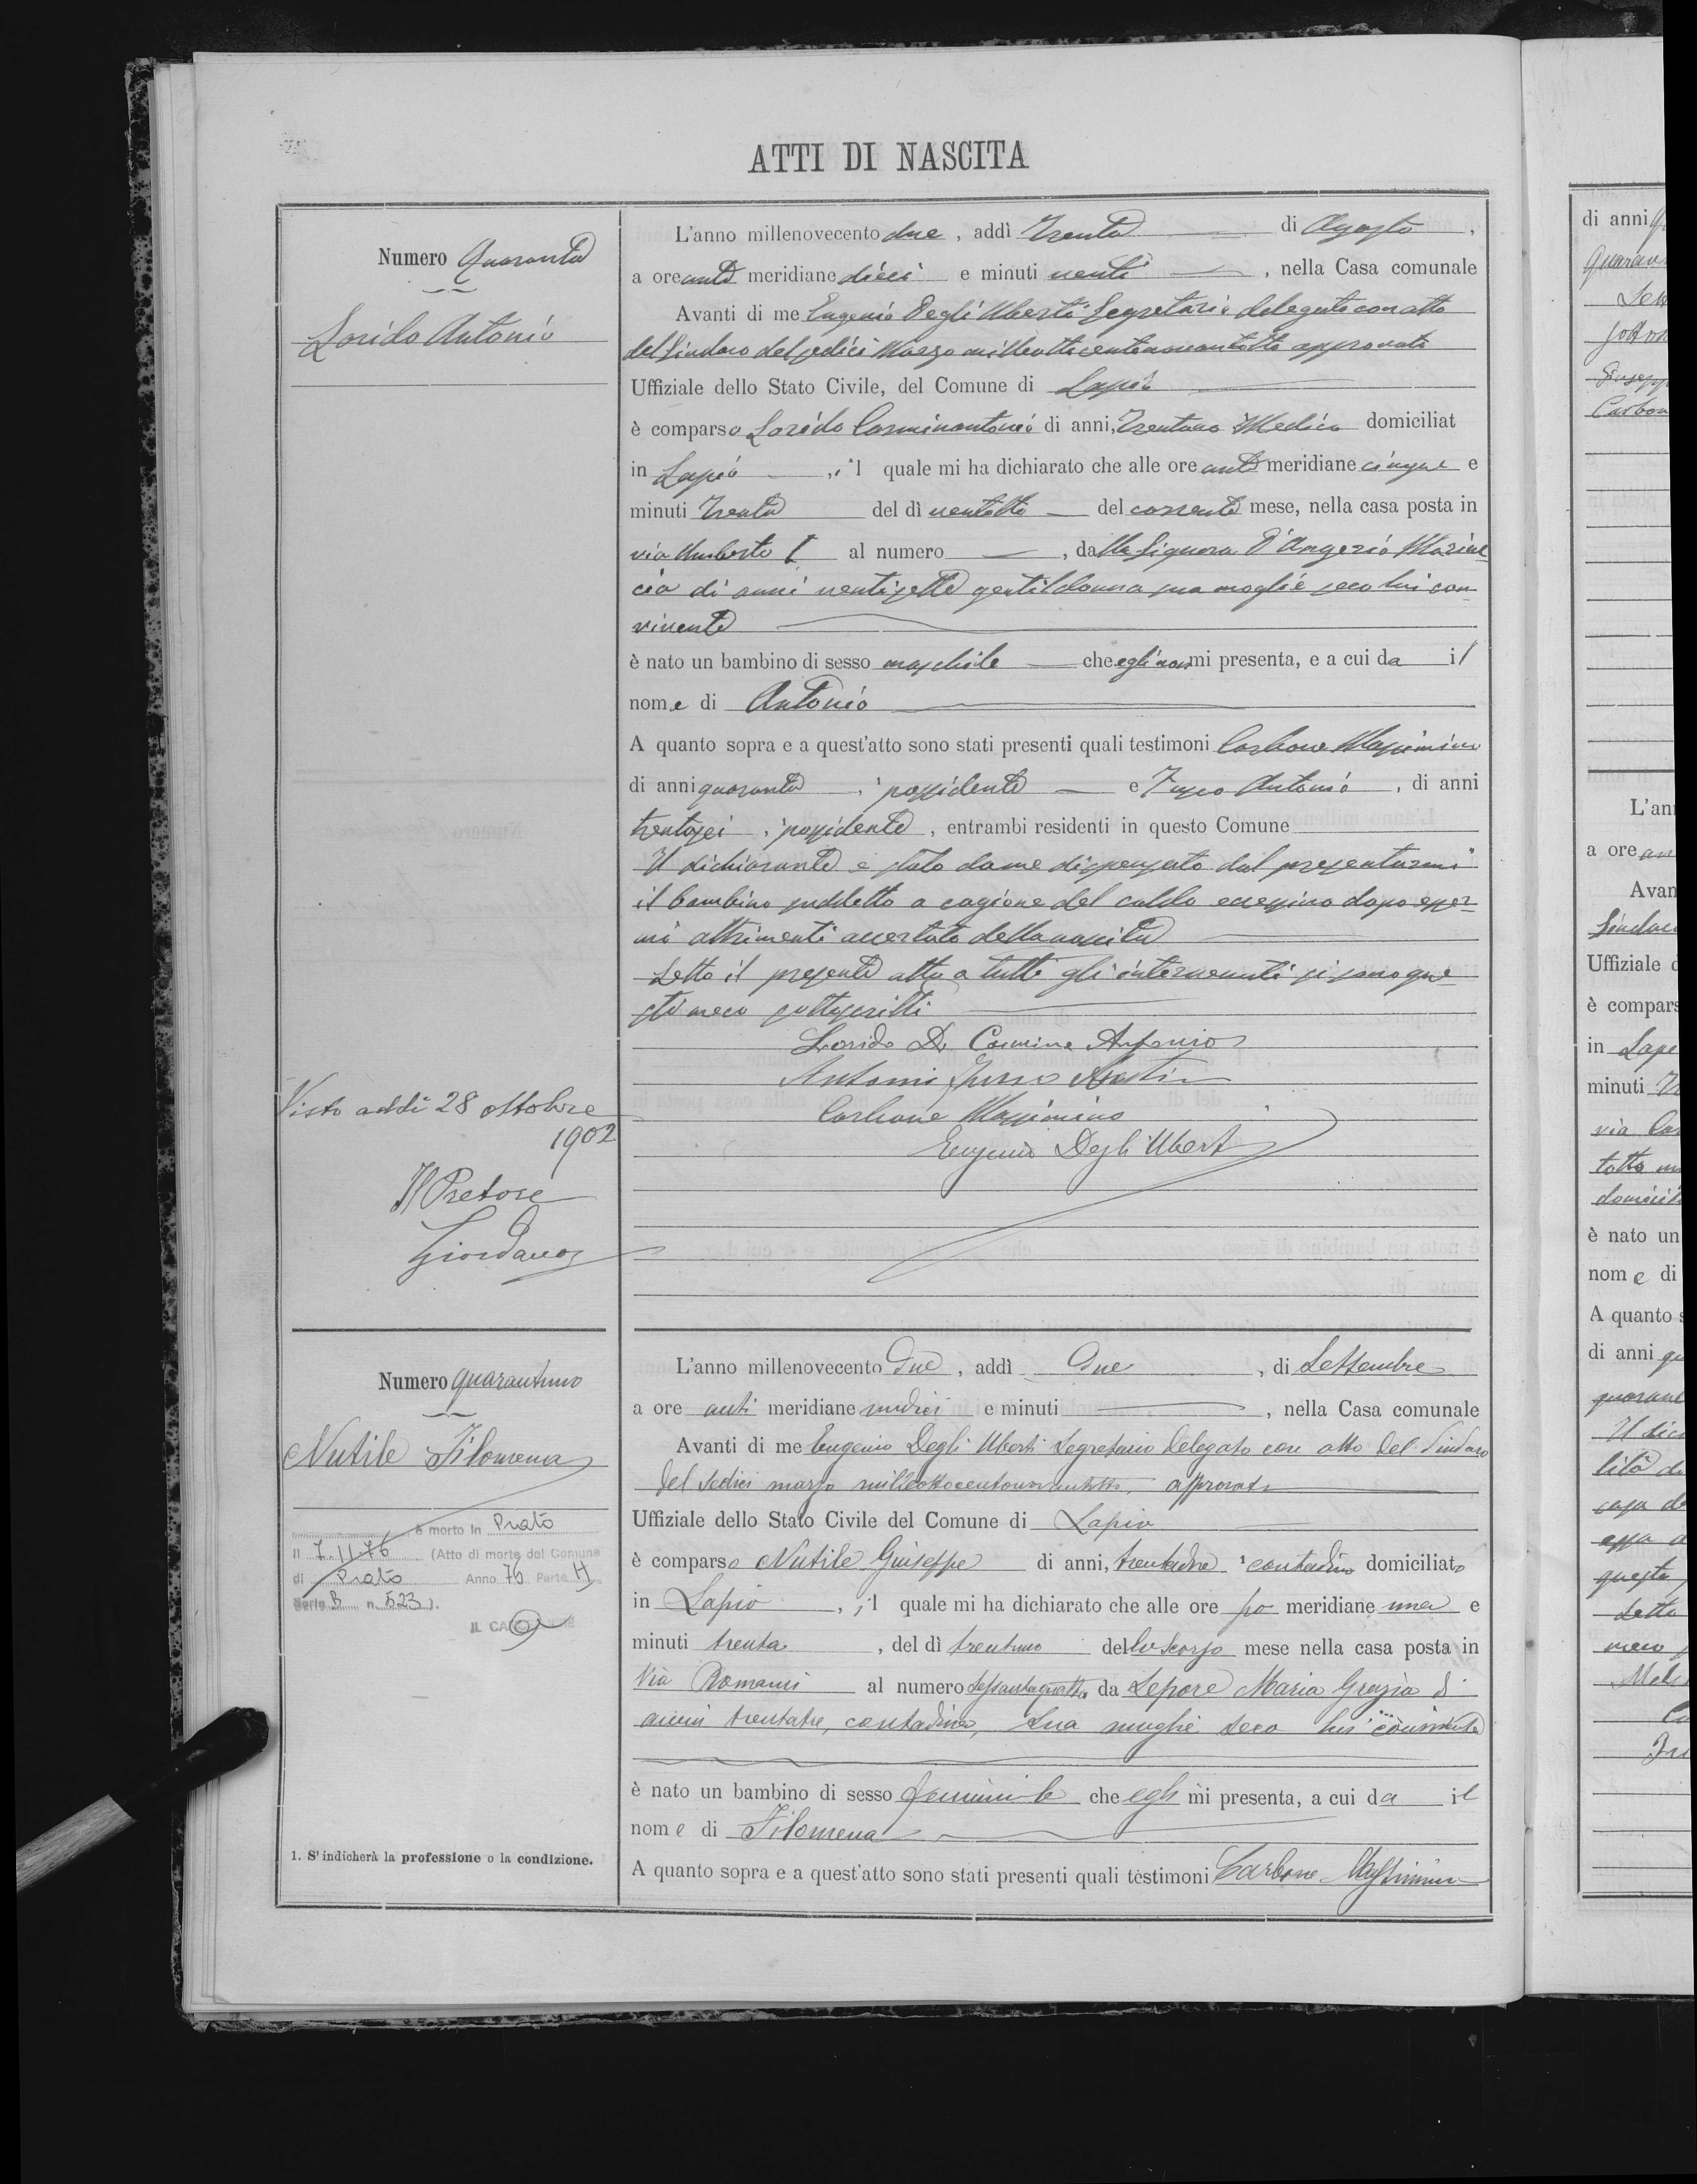 ATTI DI NASCITA
Numero Quaranta
Lorido Antonio
L'anno millenovecento due, addì Trenta di Agosto,
a ore anti meridiane dieci e minuti venti, nella Casa comunale
Avanti di me Eugenio Degli Uberti Segretario delegato con atto
del Sindaco del sedici Marzo milleottocentonovantotto approvato
Uffiziale dello Stato Civile, del Comune di Lapio
è comparso Lorido Carminantonio di anni, Trentuno Medico domiciliat
in Lapio, il quale mi ha dichiarato che alle ore anti meridiane cinque e
minuti Trenta del dì ventotto del corrente mese, nella casa posta in
via Umberto I al numero, dalla Signora D'Angerio
cia di anni ventisette gentildonna sua moglie seco lui con-
vivente
è nato un bambino di sesso maschile che egli non mi presenta, e a cui da il
nome di Antonio
A quanto sopra e a quest'atto sono stati presenti quali testimoni Carbone Massimino
di anni quaranta, possidente e Antonio, di anni
trentasei, possidente, entrambi residenti in questo Comune
Il dichiarante è stato da me dispensato dal presentarmi
il bambino suddetto a cagione del caldo eccessivo dopo esser-
mi altrimenti accertato della nascita
Letto il presente atto a tutti gli intervenuti si sono que-
sti meco sottoscritti
Lorido Dr Carmine Antonio
Antonio
Carbone Massimino
Eugenio Degli Uberti
Visto addì 28 ottobre
1902
Il Pretore
Giordano
Numero quarantuno
Nutile Filomena
è morto in Prato
Il 7.11.76 (Atto di morte del Comune
di Prato Anno 76 Parte II
Serie B n. 523).
1. S'indicherà la professione o la condizione.
L'anno millenovecento due, addì due, di Settembre
a ore anti meridiane undici e minuti, nella Casa comunale
Avanti di me Eugenio Degli Uberti Segretario delegato con atto del Sindaco
del sedici marzo milleottocentonovantotto, approvato
Uffiziale dello Stato Civile del Comune di Lapio
è comparso Nutile Giuseppe di anni, trentadue contadino domiciliato
in Lapio, il quale mi ha dichiarato che alle ore po meridiane una e
minuti trenta, del dì trentuno dello scorso mese nella casa posta in
Via Romani al numero sessantaquattro da Lepore Maria Grazia di
anni trentatre, contadina, sua moglie seco lui convivente
è nato un bambino di sesso femminile che egli mi presenta, a cui da il
nome di Filomena
A quanto sopra e a quest'atto sono stati presenti quali testimoni Carbone Massimino
di anni
L'an
a ore an
Avan
Sindaco
Uffiziale d
è compars
in Lapi
minuti
via
domicili
è nato un
nome di
A quanto s
di anni
Il dic